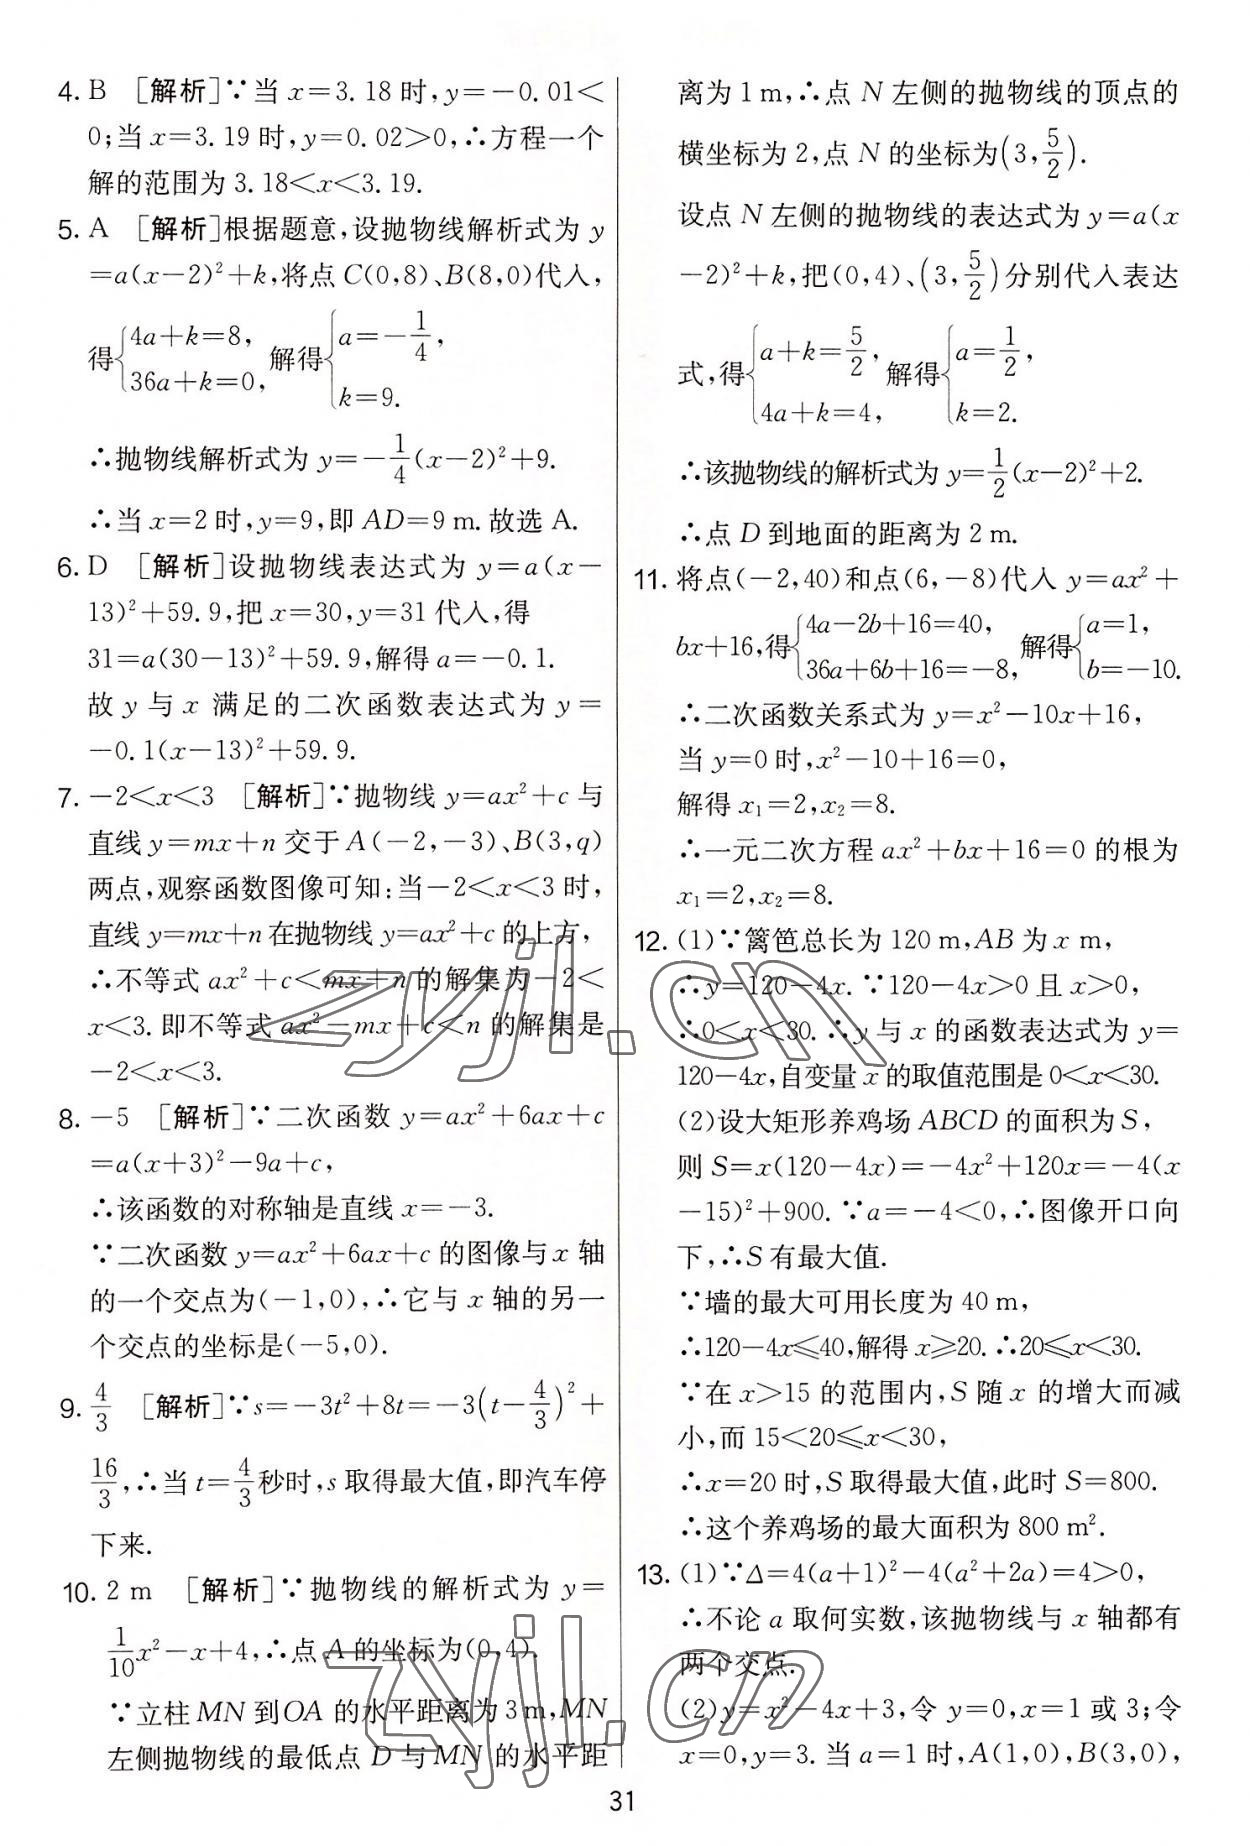 4. B [解析]∵当 x=3.18 时,y=-0.01<
0;当 x=3.19 时,y=0.02>0,∴方程一个
解的范围为 3.18<x<3.19.
5. A [解析]根据题意,设抛物线解析式为 y
=a(x-2)²+k,将点 C(0,8)、B(8,0)代入,
得{4a+k=8, 36a+k=0, 解得{a=-1/4, k=9.
∴抛物线解析式为 y=-1/4(x-2)²+9.
∴当 x=2 时,y=9,即 AD=9 m. 故选 A.
6. D [解析]设抛物线表达式为 y=a(x-
13)²+59.9,把 x=30,y=31 代入,得
31=a(30-13)²+59.9,解得 a=-0.1.
故 y 与 x 满足的二次函数表达式为 y=
-0.1(x-13)²+59.9.
7. -2<x<3 [解析]∵抛物线 y=ax²+c 与
直线 y=mx+n 交于 A(-2,-3)、B(3,q)
两点,观察函数图像可知:当-2<x<3 时,
直线 y=mx+n 在抛物线 y=ax²+c 的上方,
∴不等式 ax²+c<mx+n 的解集为-2<
x<3. 即不等式 ax²-mx+c<n 的解集是
-2<x<3.
8. -5 [解析]∵二次函数 y=ax²+6ax+c
=a(x+3)²-9a+c,
∴该函数的对称轴是直线 x=-3.
∵二次函数 y=ax²+6ax+c 的图像与 x 轴
的一个交点为(-1,0),∴它与 x 轴的另一
个交点的坐标是(-5,0).
9. 4/3 [解析]∵s=-3t²+8t=-3(t-4/3)²+
16/3,∴当 t=4/3秒时,s 取得最大值,即汽车停
下来.
10. 2 m [解析]∵抛物线的解析式为 y=
1/10x²-x+4,∴点 A 的坐标为(0,4).
∵立柱 MN 到 OA 的水平距离为 3 m,MN
左侧抛物线的最低点 D 与 MN 的水平距
离为 1 m,∴点 N 左侧的抛物线的顶点的
横坐标为 2,点 N 的坐标为(3,5/2).
设点 N 左侧的抛物线的表达式为 y=a(x
-2)²+k,把(0,4)、(3,5/2)分别代入表达
式,得{a+k=5/2, 4a+k=4, 解得{a=1/2, k=2.
∴该抛物线的解析式为 y=1/2(x-2)²+2.
∴点 D 到地面的距离为 2 m.
11. 将点(-2,40)和点(6,-8)代入 y=ax²+
bx+16,得{4a-2b+16=40, 36a+6b+16=-8, 解得{a=1, b=-10.
∴二次函数关系式为 y=x²-10x+16,
当 y=0 时,x²-10+16=0,
解得 x₁=2,x₂=8.
∴一元二次方程 ax²+bx+16=0 的根为
x₁=2,x₂=8.
12. (1)∵篱笆总长为 120 m,AB 为 x m,
∴y=120-4x. ∵120-4x>0 且 x>0,
∴0<x<30. ∴y 与 x 的函数表达式为 y=
120-4x,自变量 x 的取值范围是 0<x<30.
(2)设大矩形养鸡场 ABCD 的面积为 S,
则 S=x(120-4x)=-4x²+120x=-4(x
-15)²+900. ∵a=-4<0,∴图像开口向
下,∴S 有最大值.
∵墙的最大可用长度为 40 m,
∴120-4x≤40,解得 x≥20. ∴20≤x<30.
∵在 x>15 的范围内,S 随 x 的增大而减
小,而 15<20≤x<30,
∴x=20 时,S 取得最大值,此时 S=800.
∴这个养鸡场的最大面积为 800 m².
13. (1)∵Δ=4(a+1)²-4(a²+2a)=4>0,
∴不论 a 取何实数,该抛物线与 x 轴都有
两个交点.
(2)y=x²-4x+3,令 y=0,x=1 或 3;令
x=0,y=3. 当 a=1 时,A(1,0),B(3,0),
31
zyjl.cn
zyjl.cn